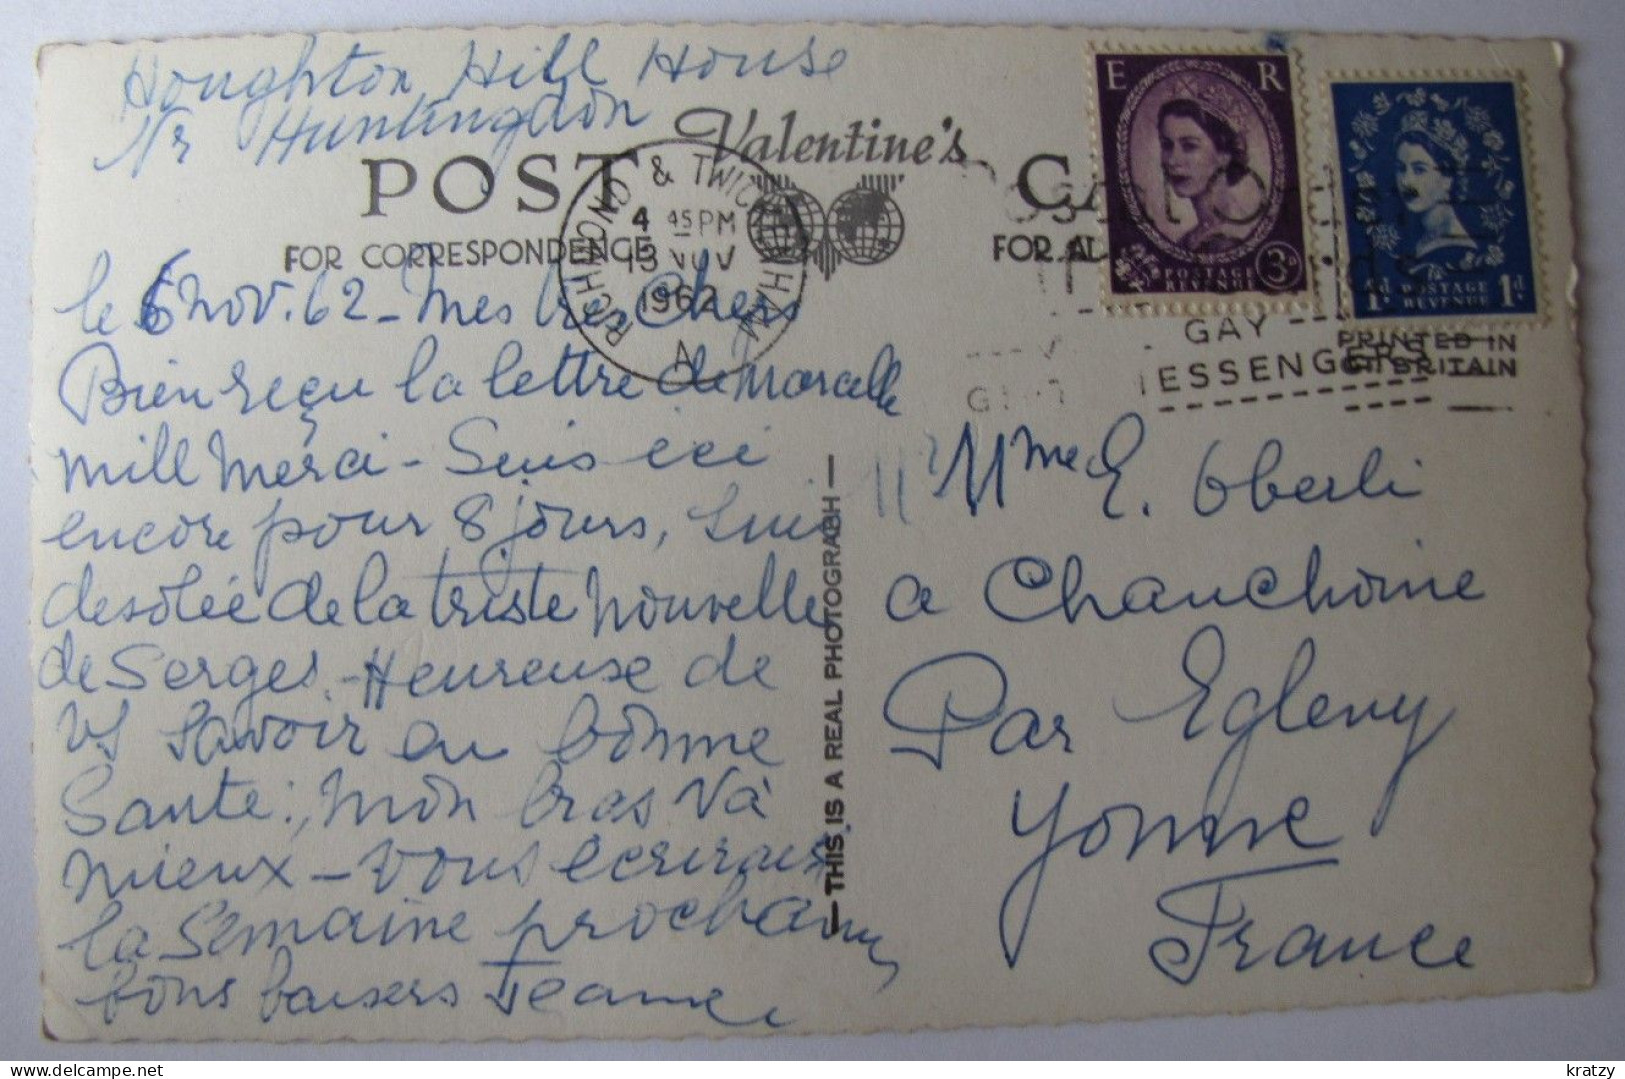 Houghton Hill House
Nr Huntingdon
Valentine's
POST CA
FOR CORRESPONDENCE FOR AD
RICHMOND & TWICKENHAM
4 45 PM
13 NOV
1962
A
E R
POSTAGE
REVENUE
3D
1D POSTAGE
REVENUE 1D
GAY
ESSENGERS
PRINTED IN
GT. BRITAIN
le 6 Nov. 62 - Mes tres Chers
Bien reçu la lettre de Marcelle
mill merci - Suis ici
encore pour 8 jours, suis
desolée de la triste nouvelle
de Serges. - Heureuse de
vs savoir en bonne
Santé; mon bras va
mieux - vous ecrirais
la semaine prochaine
bons baisers Jeanne
- THIS IS A REAL PHOTOGRAPH -
Mme E. Oberli
a Chauchoine
Par Egleny
Yonne
France
kratzy